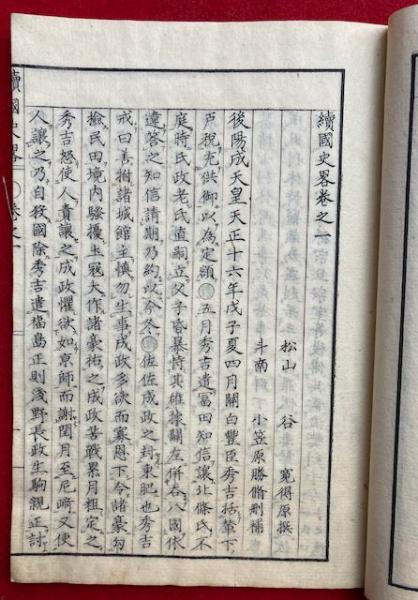 續國史畧卷之一
松山 谷 寛得原撰
斗南 小笠原勝脩刪補
後陽成天皇天正十六年戊子夏四月關白豐臣秀吉括輦下
戸稅充供御以為定額○五月秀吉遣冨田知信讓北條氏不
庭時氏政老氏直嗣立父子昏暴恃其雄據關左併吞八國依
違答之知信請期乃約以今冬○佐佐成政之封東肥也秀吉
戒曰善拊諸城館主愼勿生事成政多欲而寡恩下令諸豪勾
撿民田境内騷擾土寇大作諸豪祐之成政苦戰累月粗定之
秀吉怒使人責讓之成政懼欲如京師而謝閏月至尼﨑又使
人讓之乃自殺國除秀吉遣福島正則淺野長政生駒親正討
續國史畧 卷之一